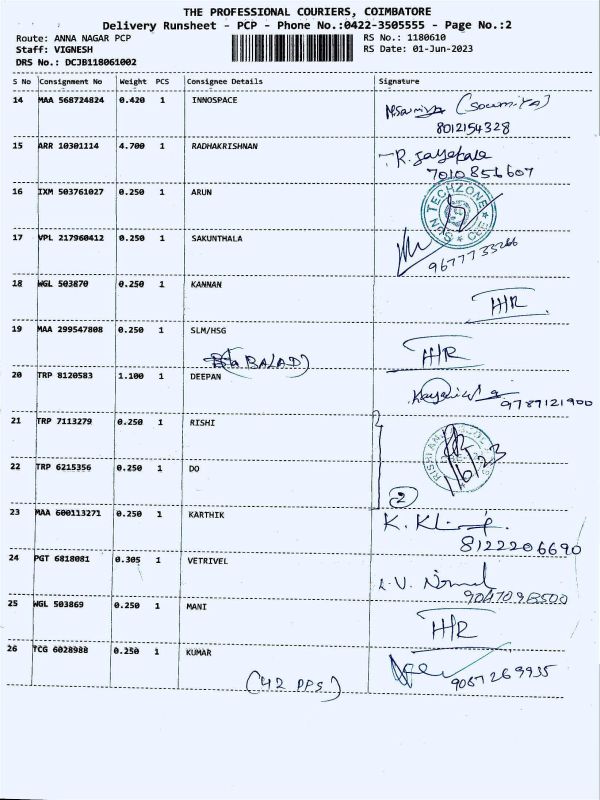 THE PROFESSIONAL COURIERS, COIMBATORE
Delivery Runsheet - PCP - Phone No.:0422-3505555 - Page No.:2
Route: ANNA NAGAR PCP RS No.: 1180610
Staff: VIGNESH RS Date: 01-Jun-2023
DRS No.: DCJB118061002
S No Consignment No Weight PCS Consignee Details Signature
14 MAA 568724824 0.420 1 INNOSPACE
(Soumiya)
8012154328
15 ARR 10301114 4.700 1 RADHAKRISHNAN
7010856607
16 IXM 503761027 0.250 1 ARUN
SUN TECHZONE CBE
17 VPL 217960412 0.250 1 SAKUNTHALA
9677733266
18 WGL 503870 0.250 1 KANNAN
H/R
19 MAA 299547808 0.250 1 SLM/HSG
H/R
20 TRP 8120583 1.100 1 DEEPAN
9787121900
21 TRP 7113279 0.250 1 RISHI
1/6/23
22 TRP 6215356 0.250 1 DO
2
23 MAA 600113271 0.250 1 KARTHIK
8122206690
24 PGT 6818081 0.305 1 VETRIVEL
25 WGL 503869 0.250 1 MANI
H/R
26 TCG 6028988 0.250 1 KUMAR
9087269935
(42 PPS)